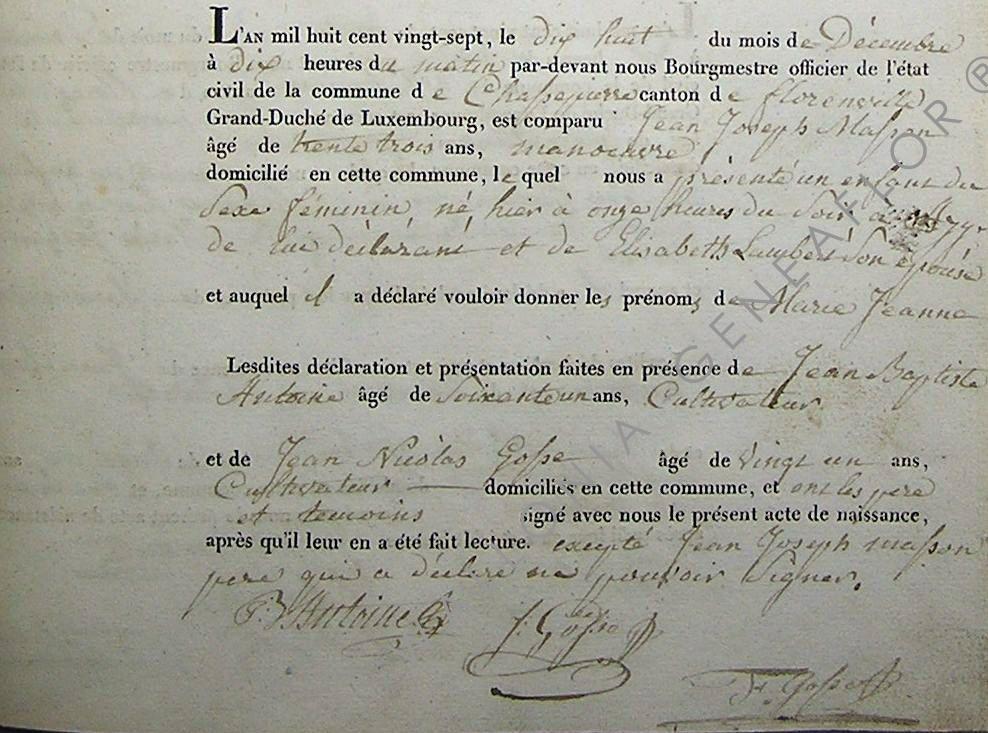 L'AN mil huit cent vingt-sept, le dix huit du mois de Décembre
à dix heures du matin par-devant nous Bourgmestre officier de l'état
civil de la commune de Chassepierre canton de florenville
Grand-Duché de Luxembourg, est comparu Jean Joseph Masson
âgé de trente trois ans, manoeuvre
domicilié en cette commune, lequel nous a présenté un enfant du
Sexe féminin, né, hier à onze heures du Soir à
de lui déclarant et de Elisabeth Lambert Son épouse
et auquel il a déclaré vouloir donner les prénoms de Marie Jeanne
Lesdites déclaration et présentation faites en présence de Jean Baptiste
Antoine âgé de Soixante un ans, Cultivateur
et de Jean Nicolas Gosse âgé de vingt un ans,
Cultivateur domiciliés en cette commune, et ont les pere
et temoins signé avec nous le présent acte de naissance,
après qu'il leur en a été fait lecture. excepté Jean Joseph masson
pere qui a déclaré ne pouvoir Signer.
Antoine J. Gosse
Gosse
GENEAFOR ®